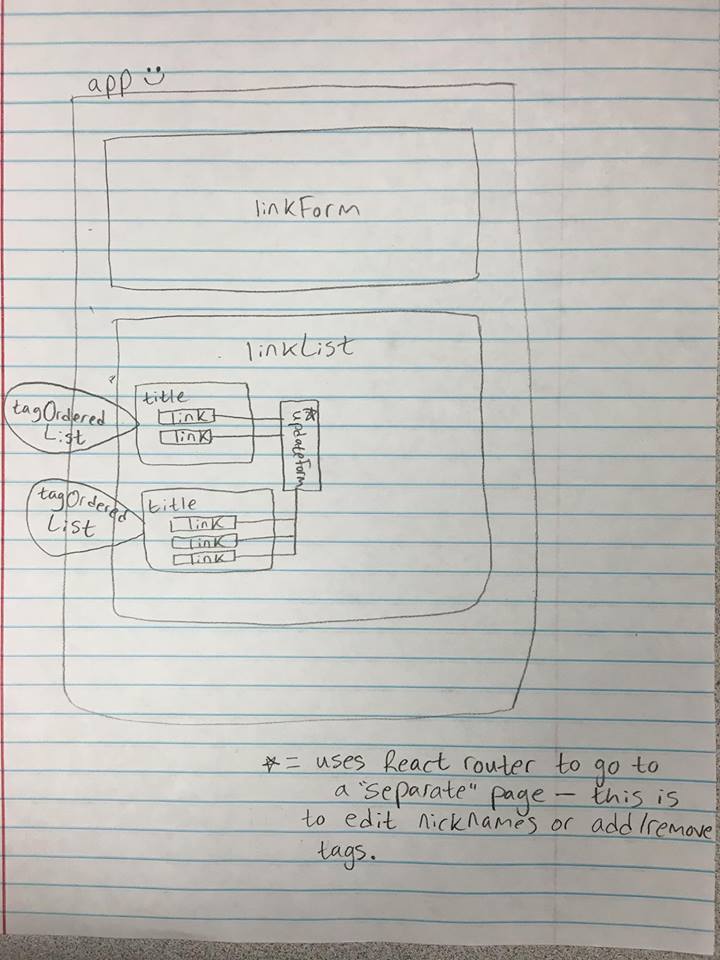 app
linkForm
linkList
tagOrdered
List
title
link
link
☆ updateForm
tagOrdered
List
title
link
link
link
☆ = uses React router to go to
a "separate" page — this is
to edit nicknames or add/remove
tags.